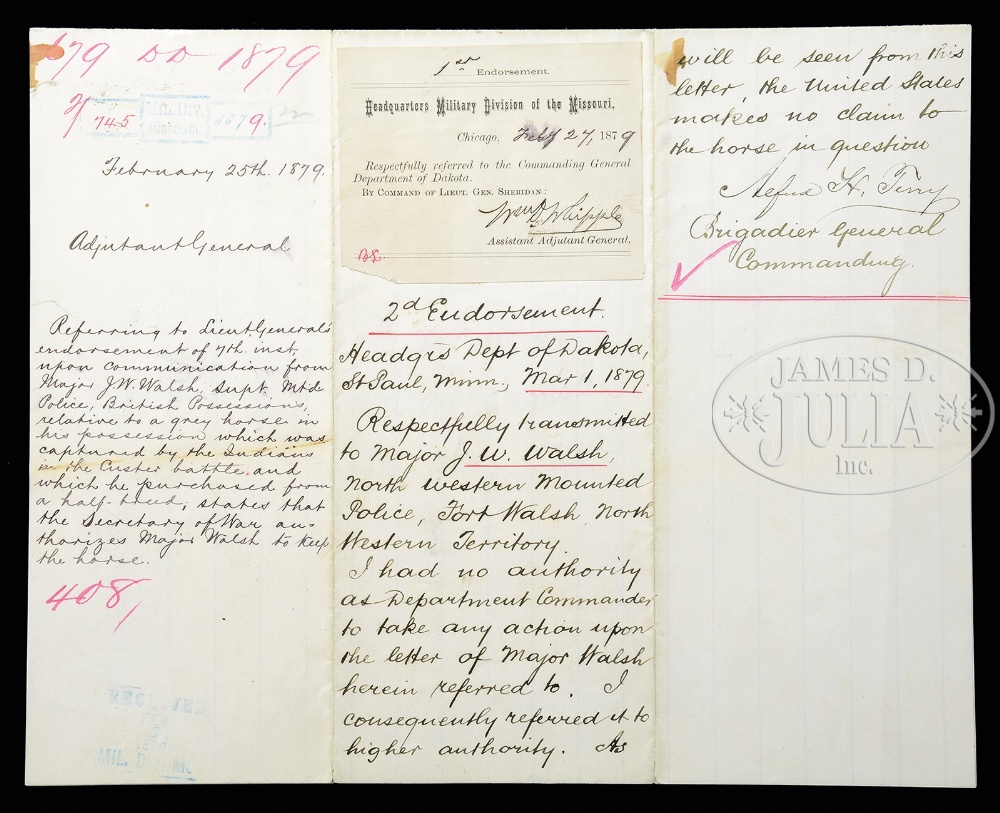 179 DD 1879
745
MIL. DIV.
MISSOURI
1879.
February 25th. 1879.
Adjutant General
Referring to Lieut. General's
endorsement of 7th. inst,
upon communication from
Major J.W. Walsh, Supt. Mtd.
Police, British Possessions,
relative to a grey horse in
his possession which was
captured by the Indians
in the Custer battle, and
which he purchased from
a half-breed; states that
the Secretary of War au-
thorizes Major Walsh to keep
the horse.
408,
MIL.
1st Endorsement.
Headquarters Military Division of the Missouri,
Chicago, Feby 27, 1879
Respectfully referred to the Commanding General
Department of Dakota.
By Command of Lieut. Gen. Sheridan:
Wm D Whipple
Assistant Adjutant General.
2d Endorsement.
Headqrs Dept of Dakota,
St Paul, Minn., Mar 1, 1879.
Respectfully transmitted
to Major J. W. Walsh,
North western Mounted
Police, Fort Walsh, North
Western Territory.
I had no authority
as Department Commander
to take any action upon
the letter of Major Walsh
herein referred to. I
consequently referred it to
higher authority. As
will be seen from this
letter, the United States
makes no claim to
the horse in question
Alfred H. Terry
Brigadier General
Commanding.
JAMES D.
JULIA
Inc.